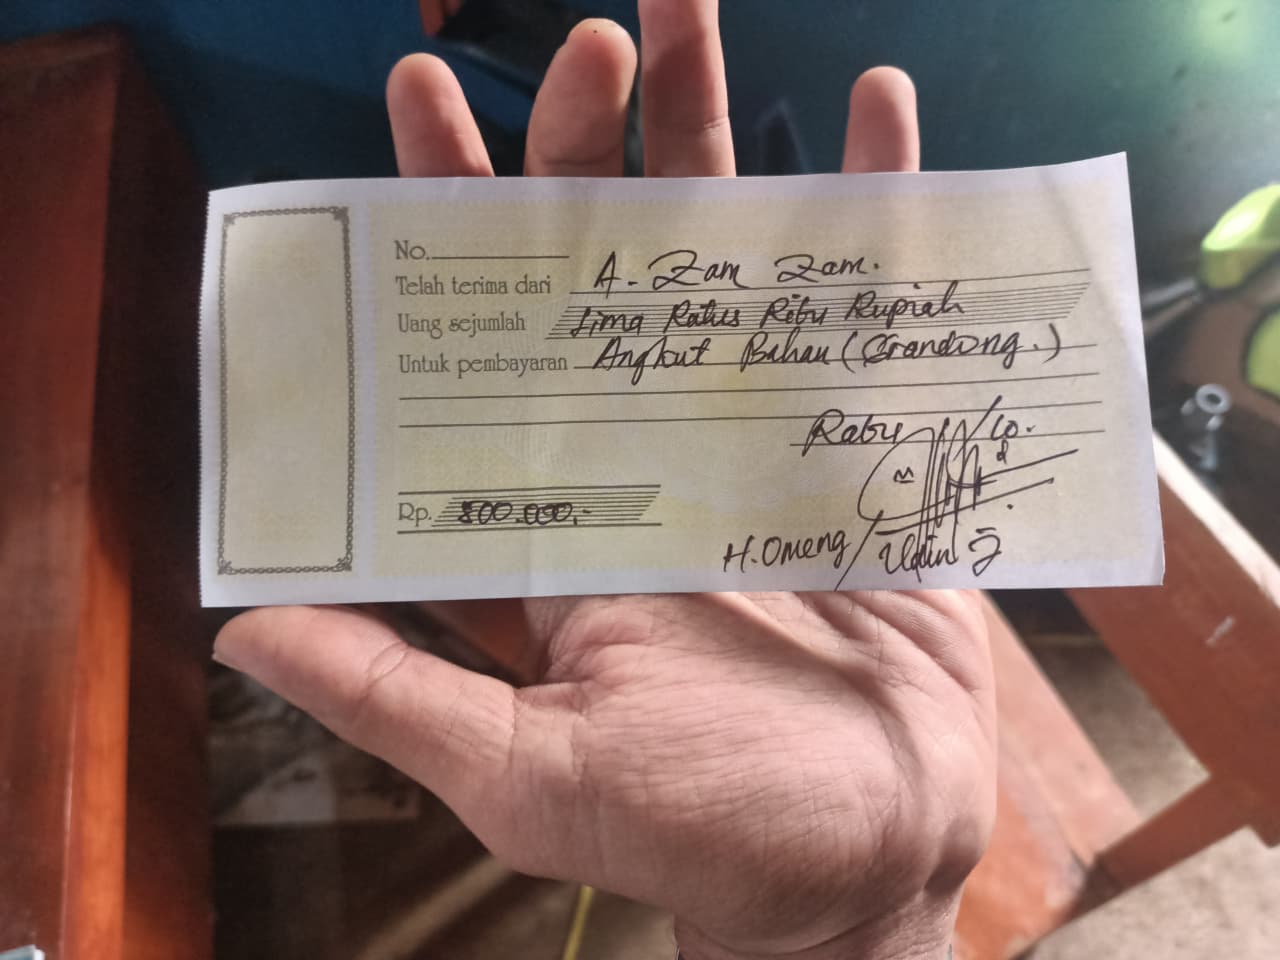 No.
Telah terima dari A. Zam Zam.
Uang sejumlah Lima Ratus Ribu Rupiah
Untuk pembayaran Angkut Bahan (Grandong.)
Rabu / 10.
Rp. 500.000,-
H. Omeng / Udin J